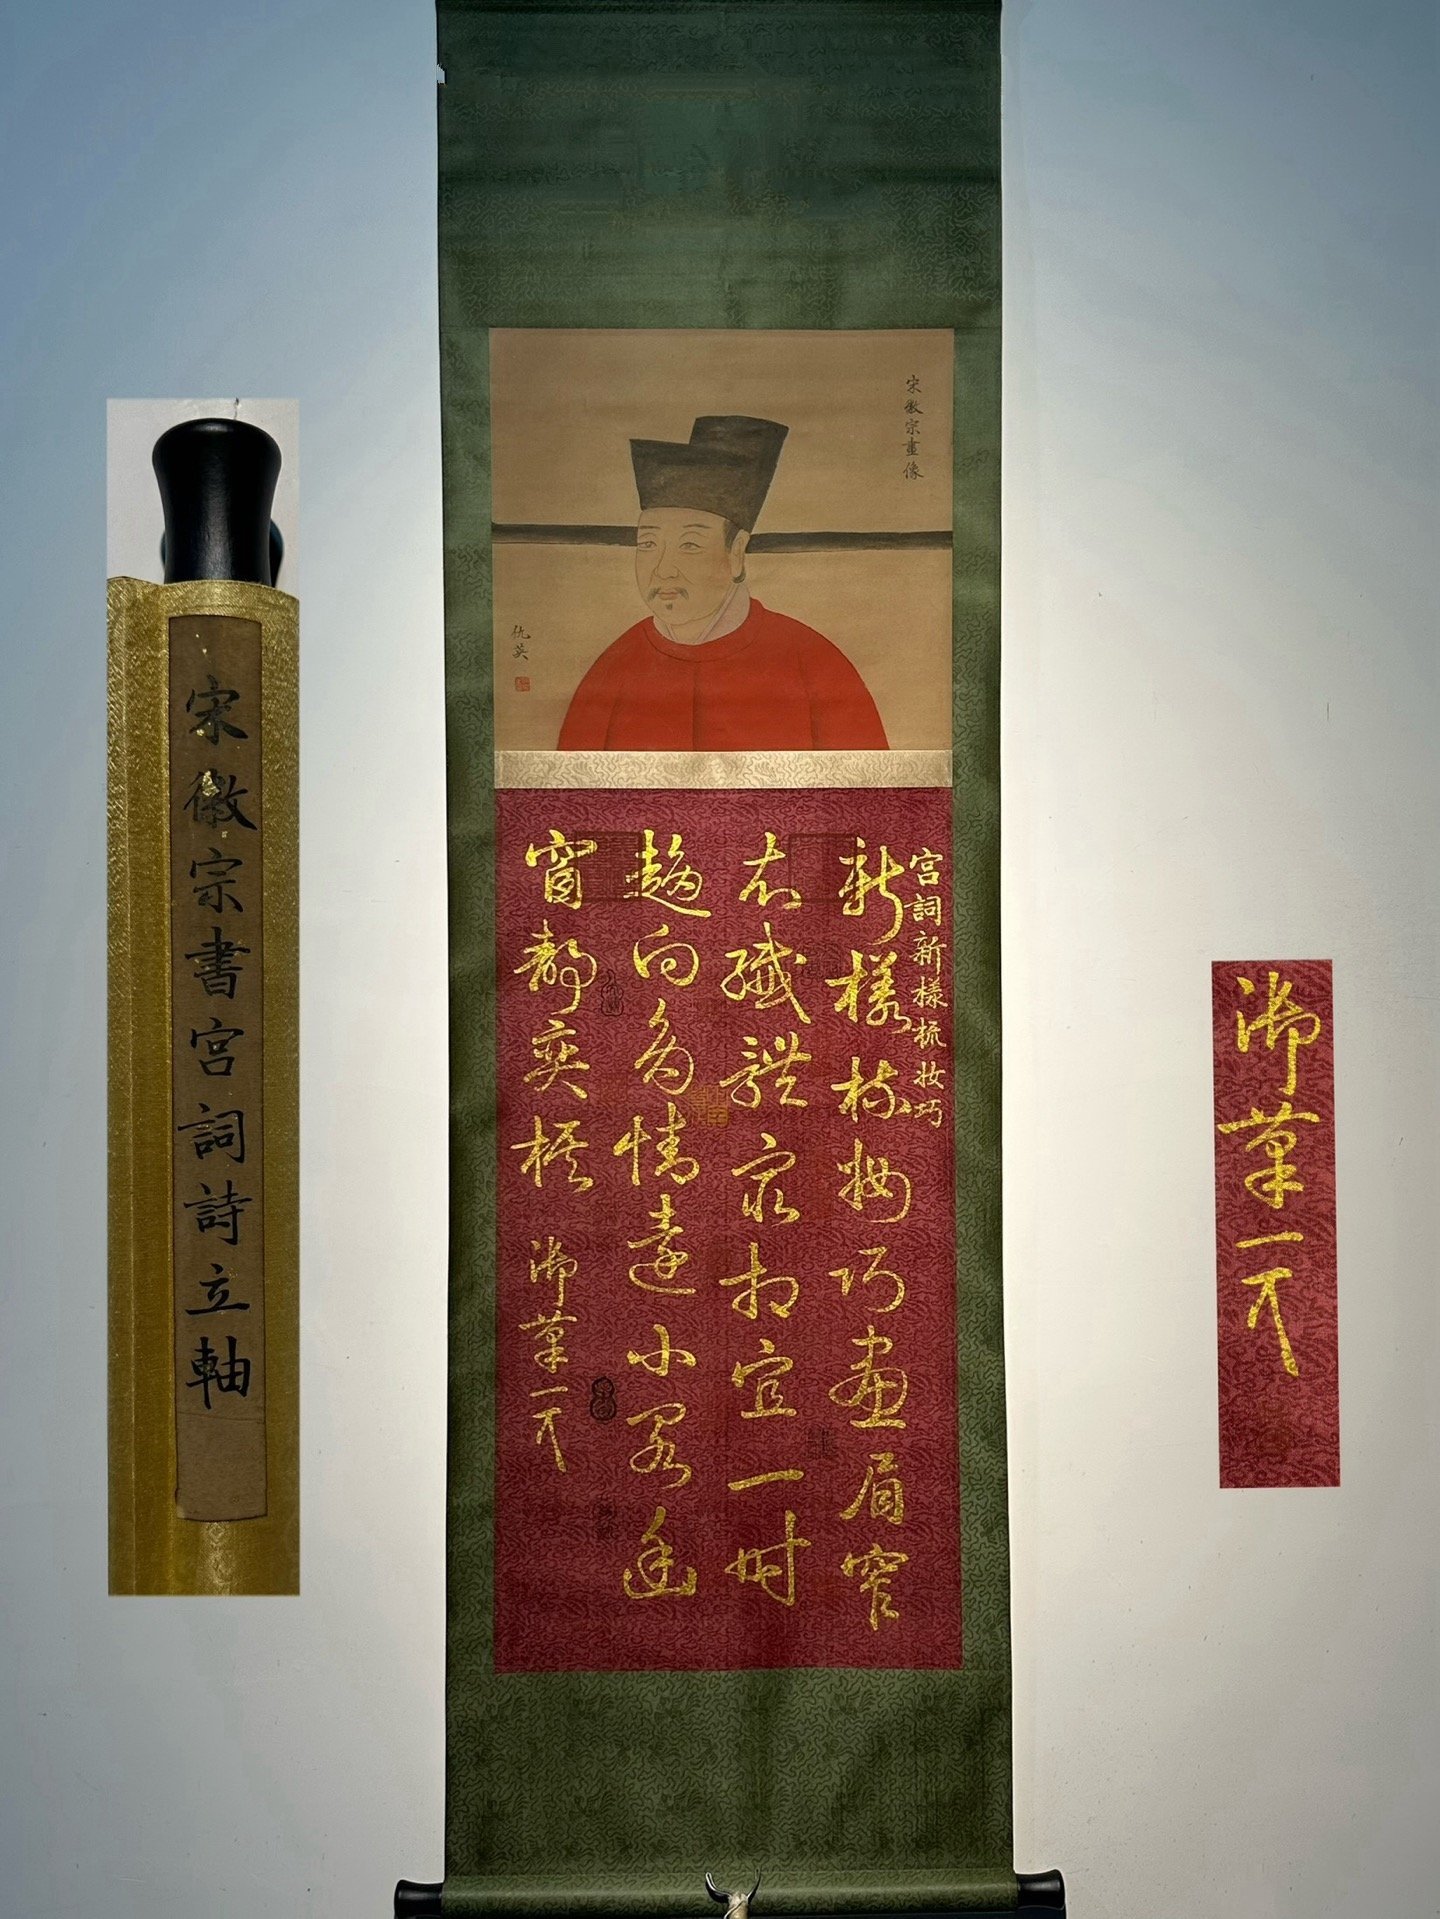 宋徽宗書宫詞詩立軸
宋徽宗畫像
仇英
宫詞新樣梳妆巧
新樣梳妝巧畫眉窄
衣纖體最相宜一時
趍向多情逗小閣幽
窗靜奕棋
御筆天下一人
御筆天下一人